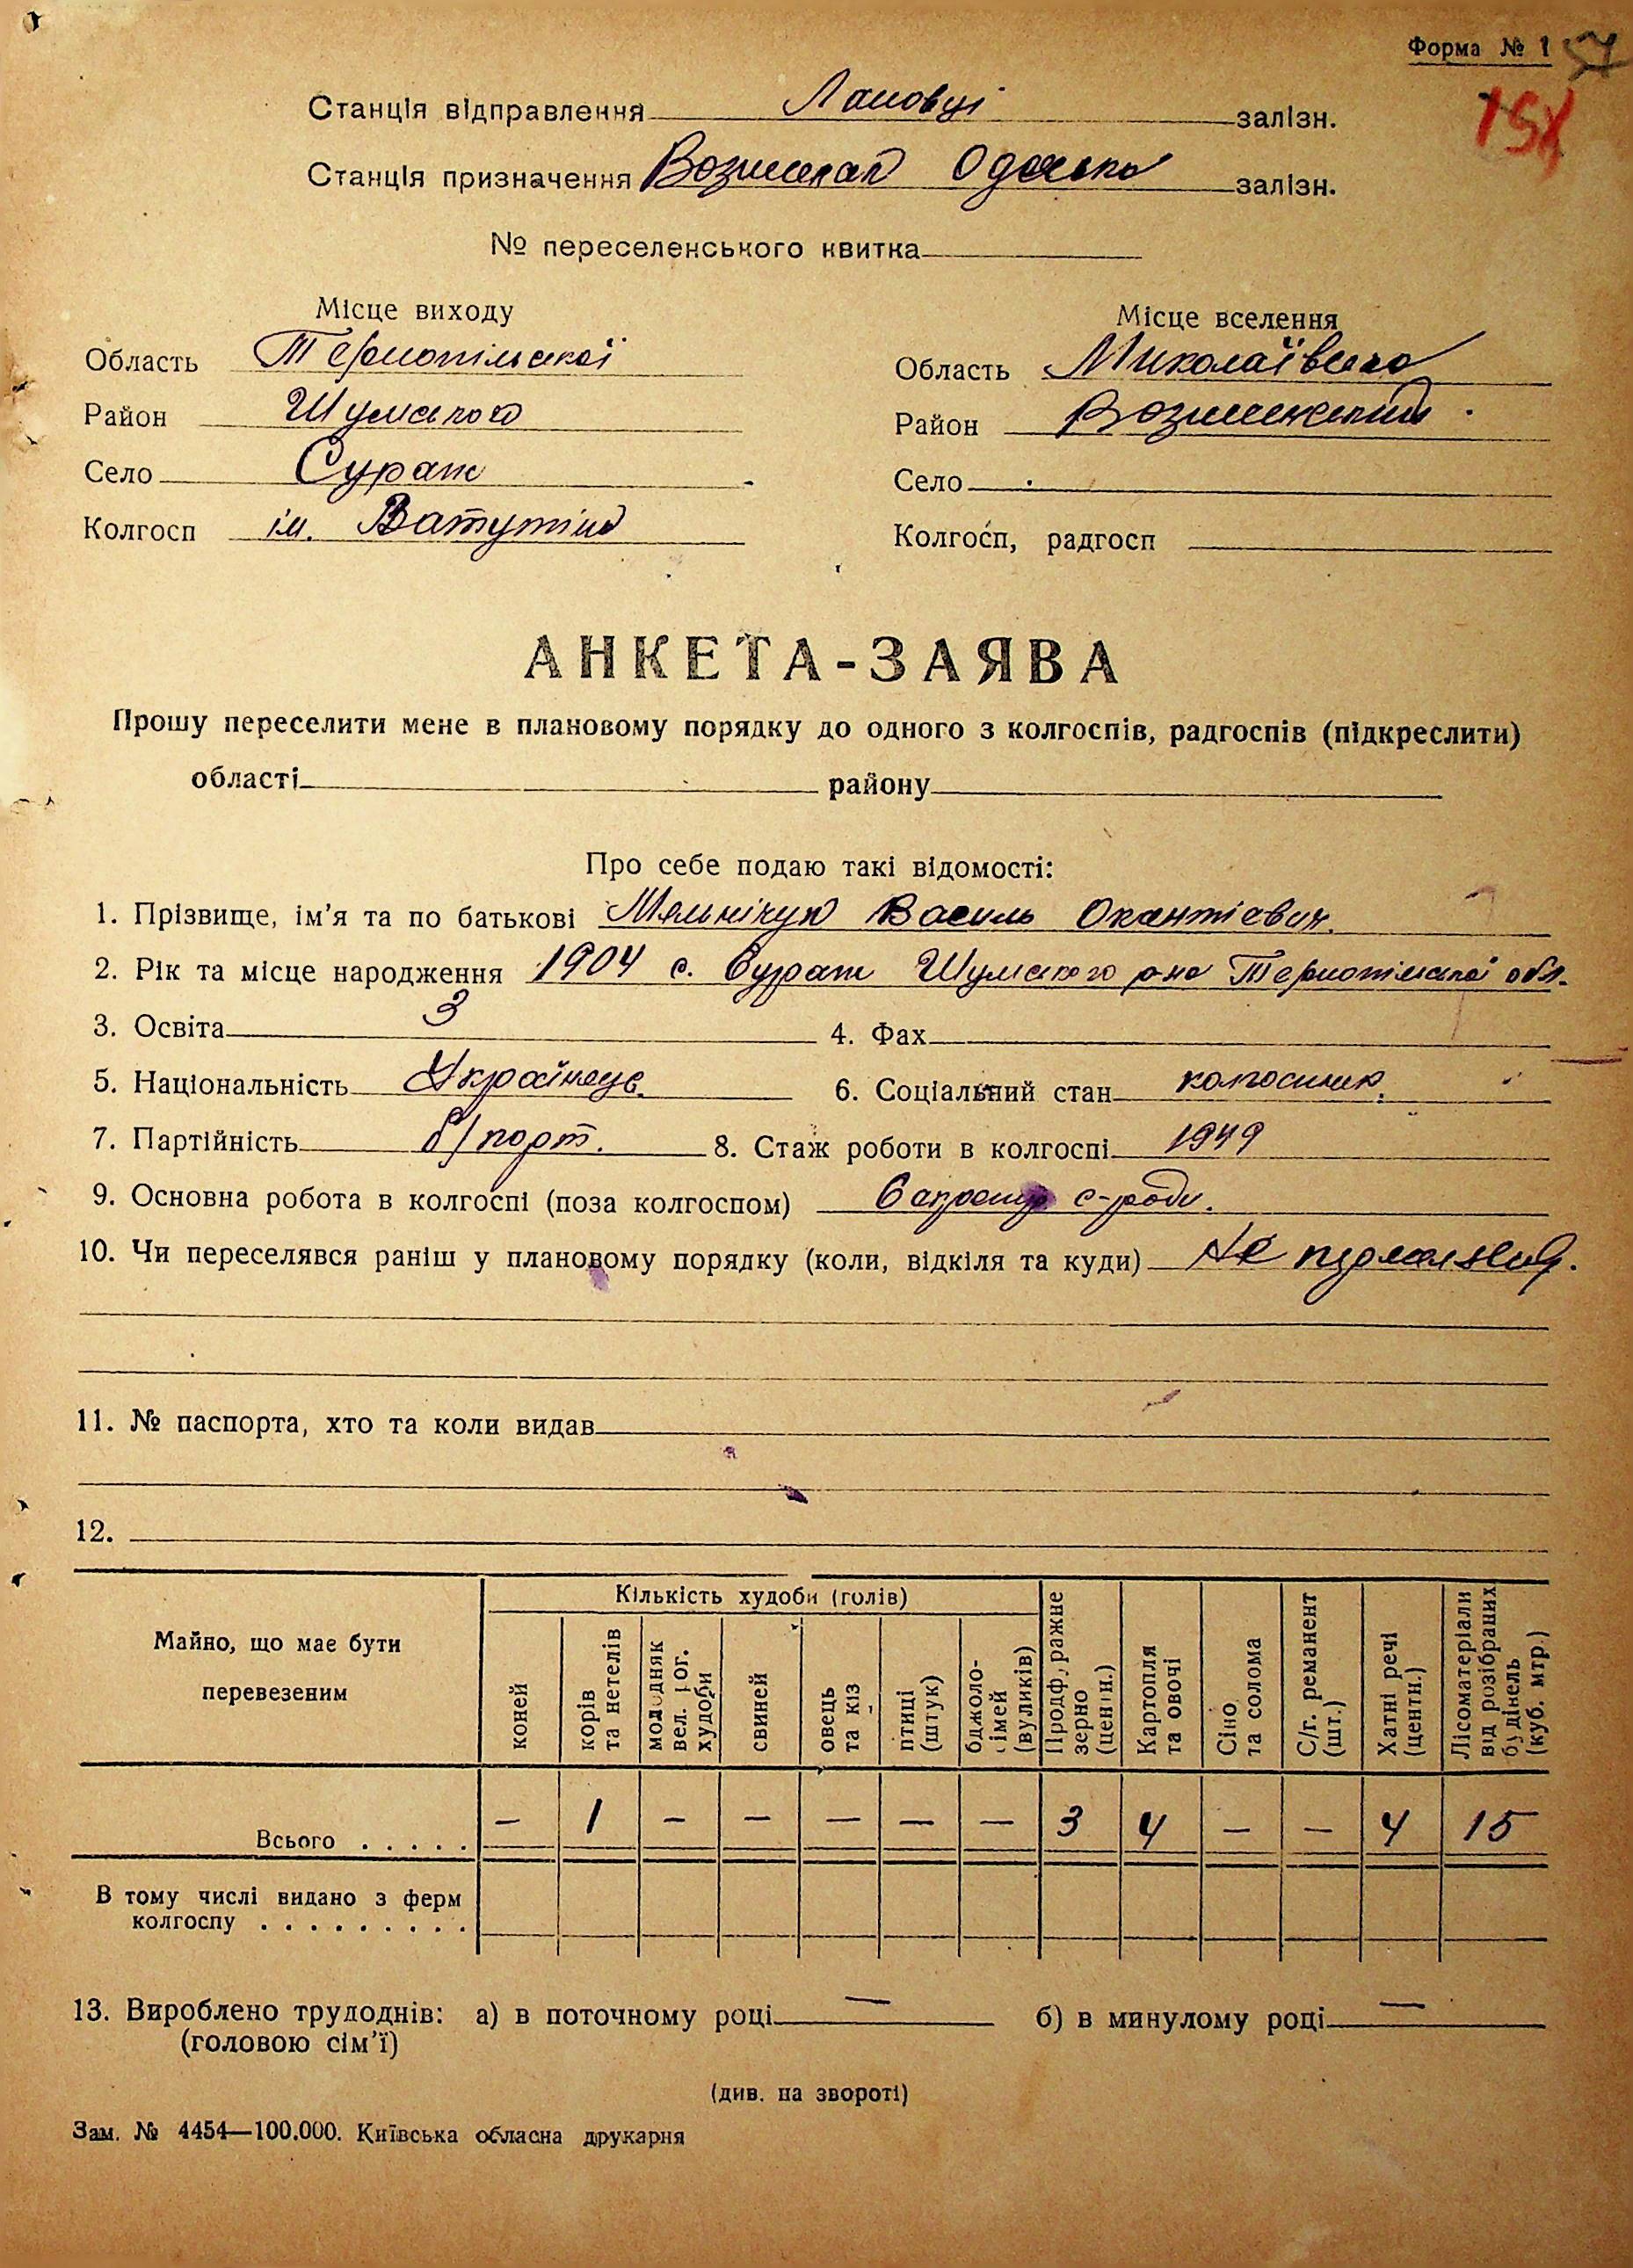 Форма № 1 57
Станція відправлення Лановці залізн.
154
Станція призначення Одеська залізн.
№ переселенського квитка
Місце виходу
Місце вселення
Область Тернопільської
Область Миколаївська
Район Шумського
Район Вознесенський
Село Сураж
Село
Колгосп ім. Ватутіна
Колгосп, радгосп
АНКЕТА-ЗАЯВА
Прошу переселити мене в плановому порядку до одного з колгоспів, радгоспів (підкреслити)
області району
Про себе подаю такі відомості:
1. Прізвище, ім'я та по батькові Мельнічук Василь
2. Рік та місце народження 1904 с. Сураж Шумського р-на Тернопільської обл.
3. Освіта 3 4. Фах
5. Національність Українець. 6. Соціальний стан колгосник.
7. Партійність б/парт. 8. Стаж роботи в колгоспі 1949
9. Основна робота в колгоспі (поза колгоспом)
10. Чи переселявся раніш у плановому порядку (коли, відкіля та куди) Не
11. № паспорта, хто та коли видав
12.
Майно, що має бути перевезеним
Кількість худоби (голів)
коней
корів та нетелів
молодняк вел. рог. худоби
свиней
овець та кіз
птиці (штук)
бджолосімей (вуликів)
Продф,ражне зерно (центн.)
Картопля та овочі
Сіно та солома
С/г. реманент (шт.)
Хатні речі (центн.)
Лісоматеріали від розібраних будінель (куб. мтр.)
Всього . . . . . — 1 — — — — — 3 4 — — 4 15
В тому числі видано з ферм
колгоспу . . . . . . . . .
13. Вироблено трудоднів: а) в поточному році — б) в минулому році —
(головою сім'ї)
(див. на звороті)
Зам. № 4454—100.000. Київська обласна друкарня